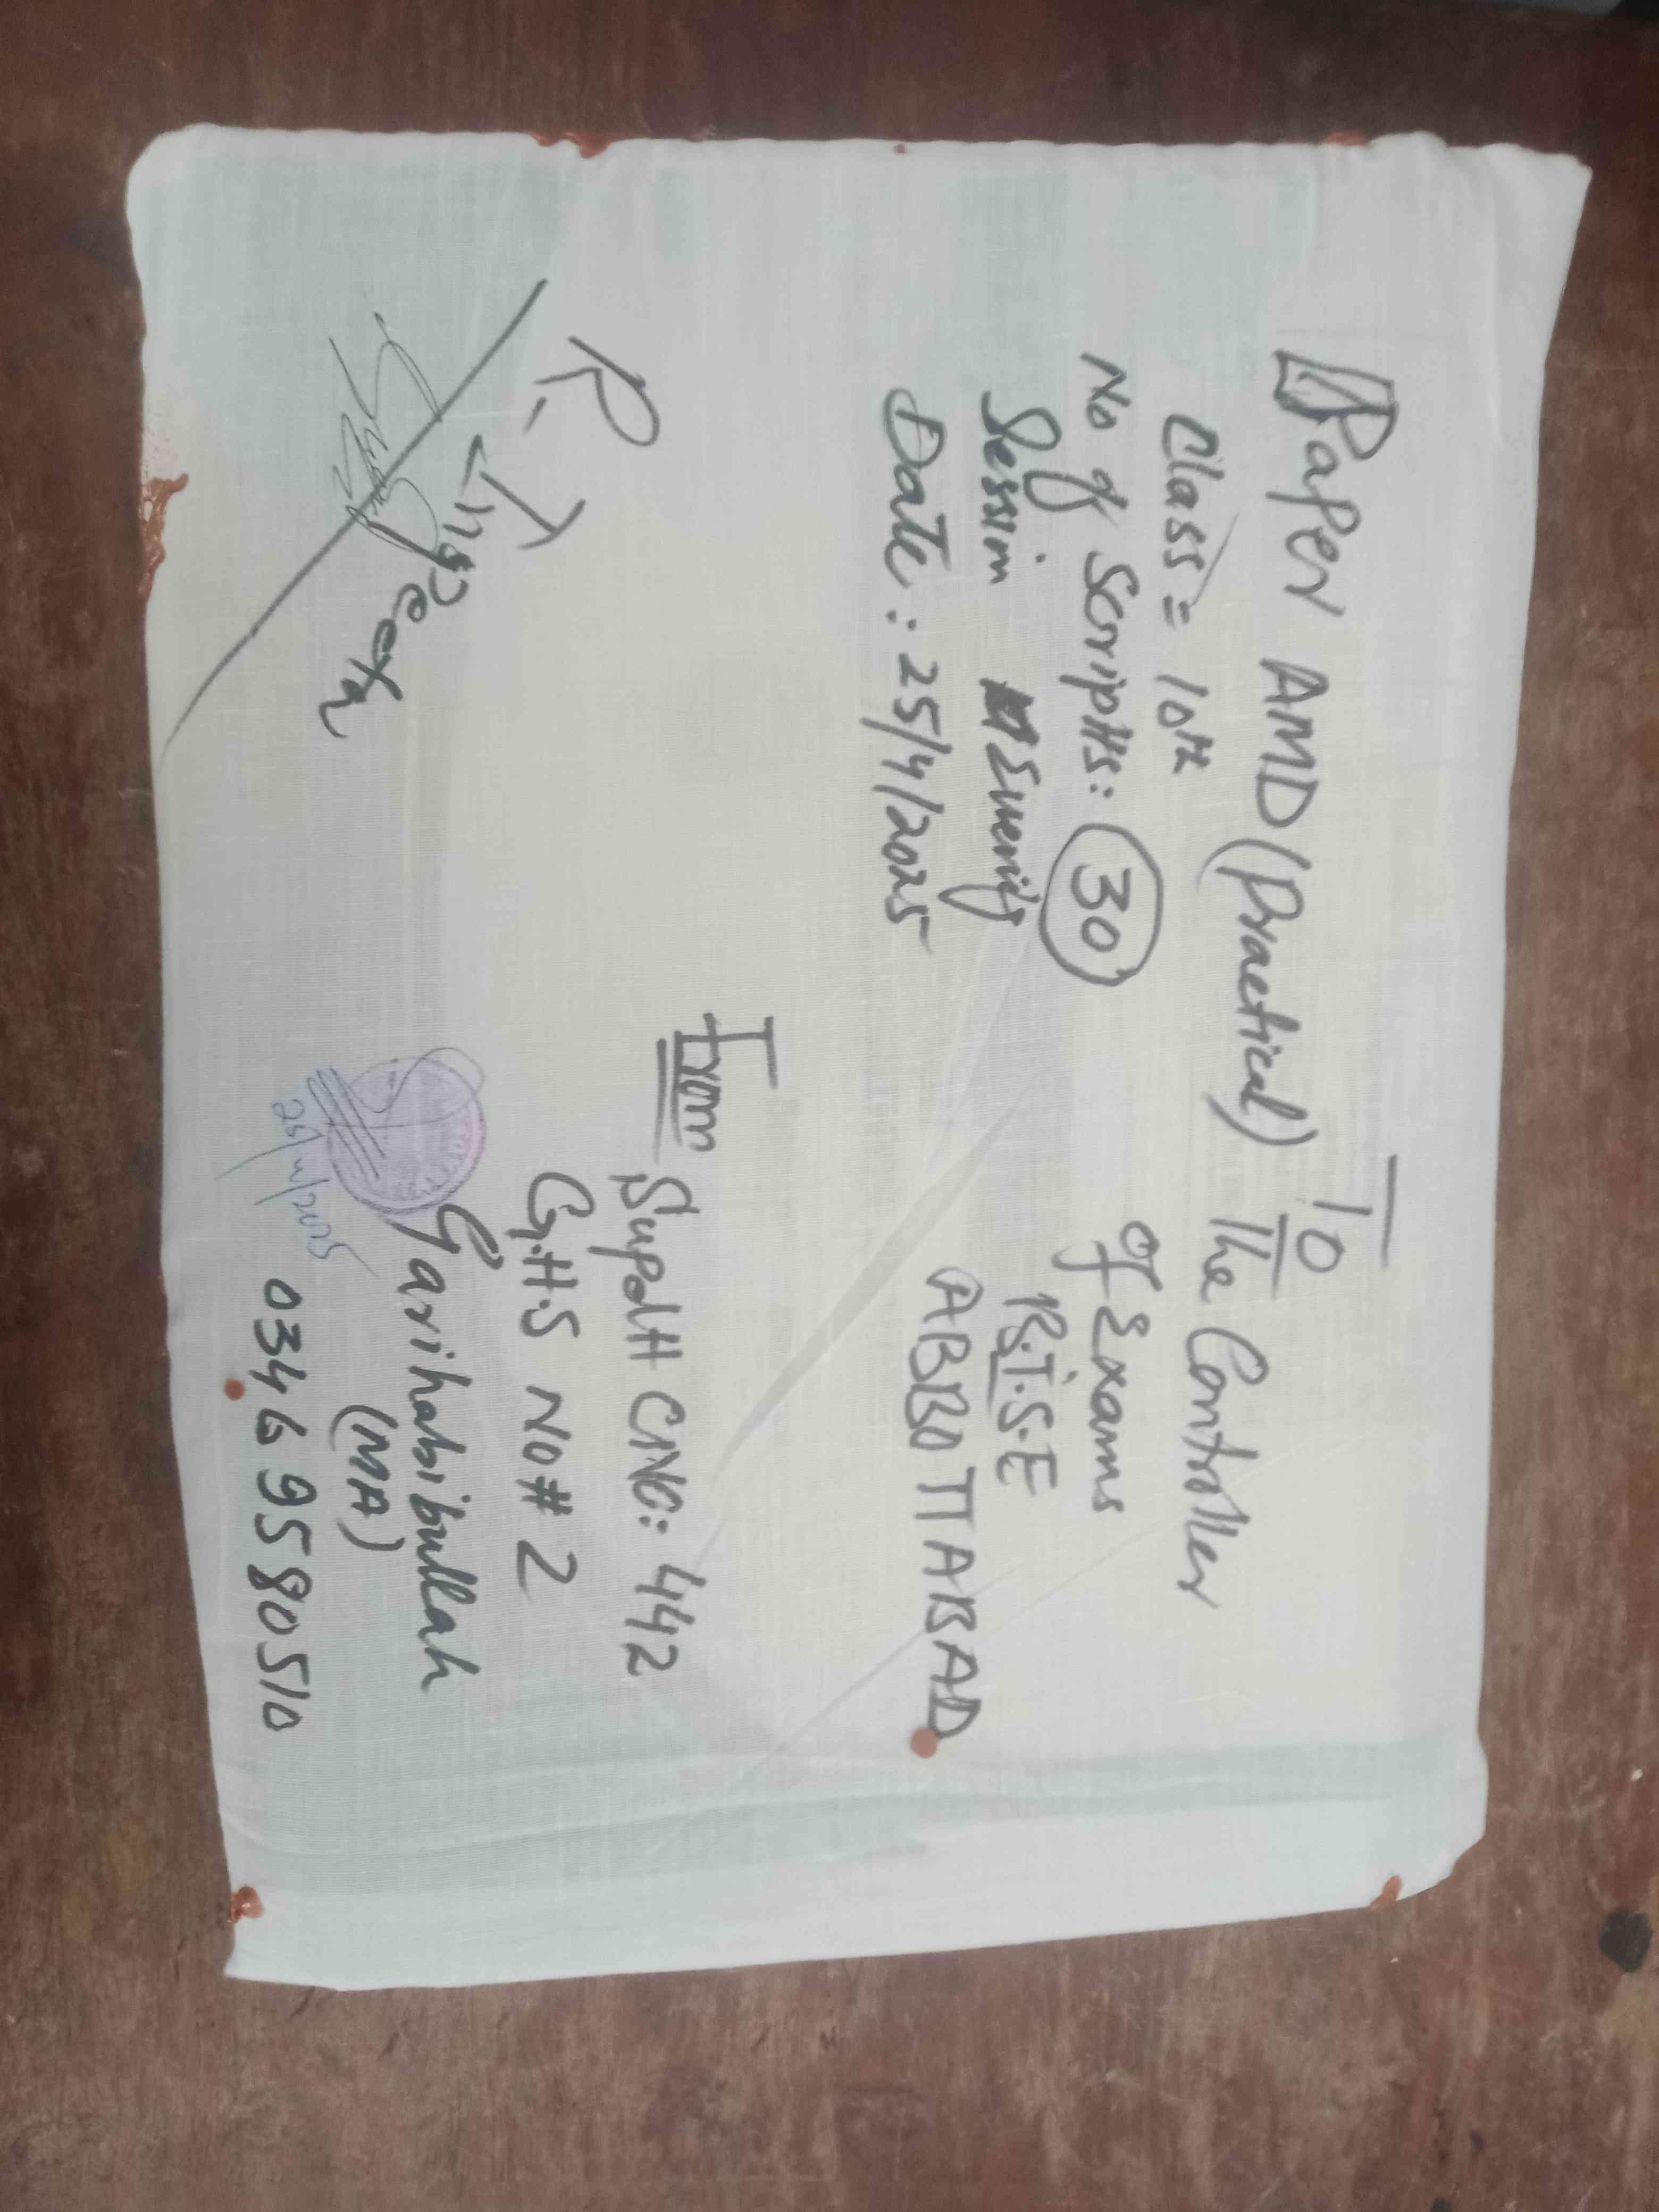 Paper AMD (Practical)
Class = 10th
No of Scriptts: 30
Session Evening
Date: 25/4/2025
To
The Controller
of Exams
B.I.S.E
ABBOTTABAD
From
Supdtt C.NO: 442
G.H.S NO # 2
Qarihabibullah
(MA)
0346 9580510
25/4/2025
R. Inspector